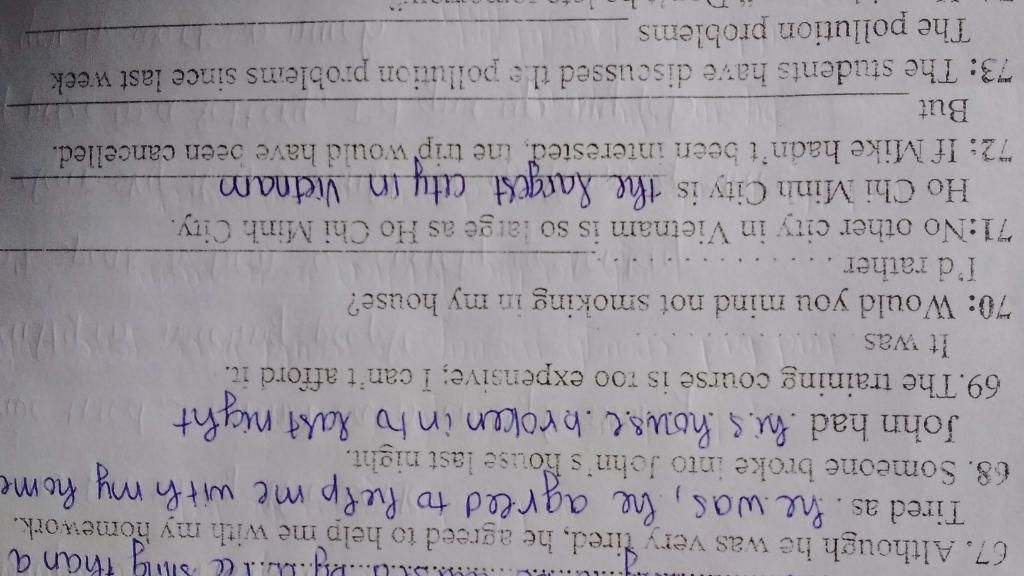 67. Although he was very tired, he agreed to help me with my homework.
Tired as he was, he agreed to help me with my home
68. Someone broke into John's house last night.
John had his house broken into last night
69. The training course is too expensive; I can't afford it.
It was . . . . . . . . . . . .
70: Would you mind not smoking in my house?
I'd rather . . . . . . . . . . . . . .
71: No other city in Vietnam is so large as Ho Chi Minh City.
Ho Chi Minh City is the largest city in Vietnam
72: If Mike hadn't been interested, the trip would have been cancelled.
But
73: The students have discussed the pollution problems since last week
The pollution problems